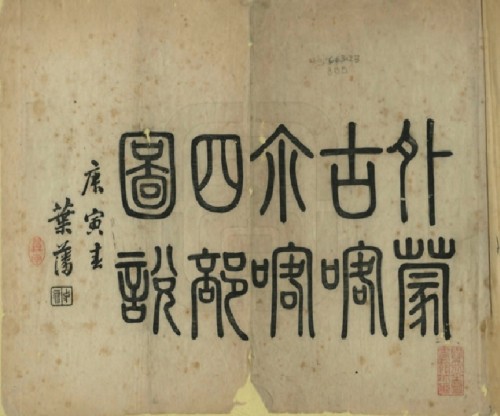 外蒙
古喀
尒喀
四部
圖說
庚寅春
葉